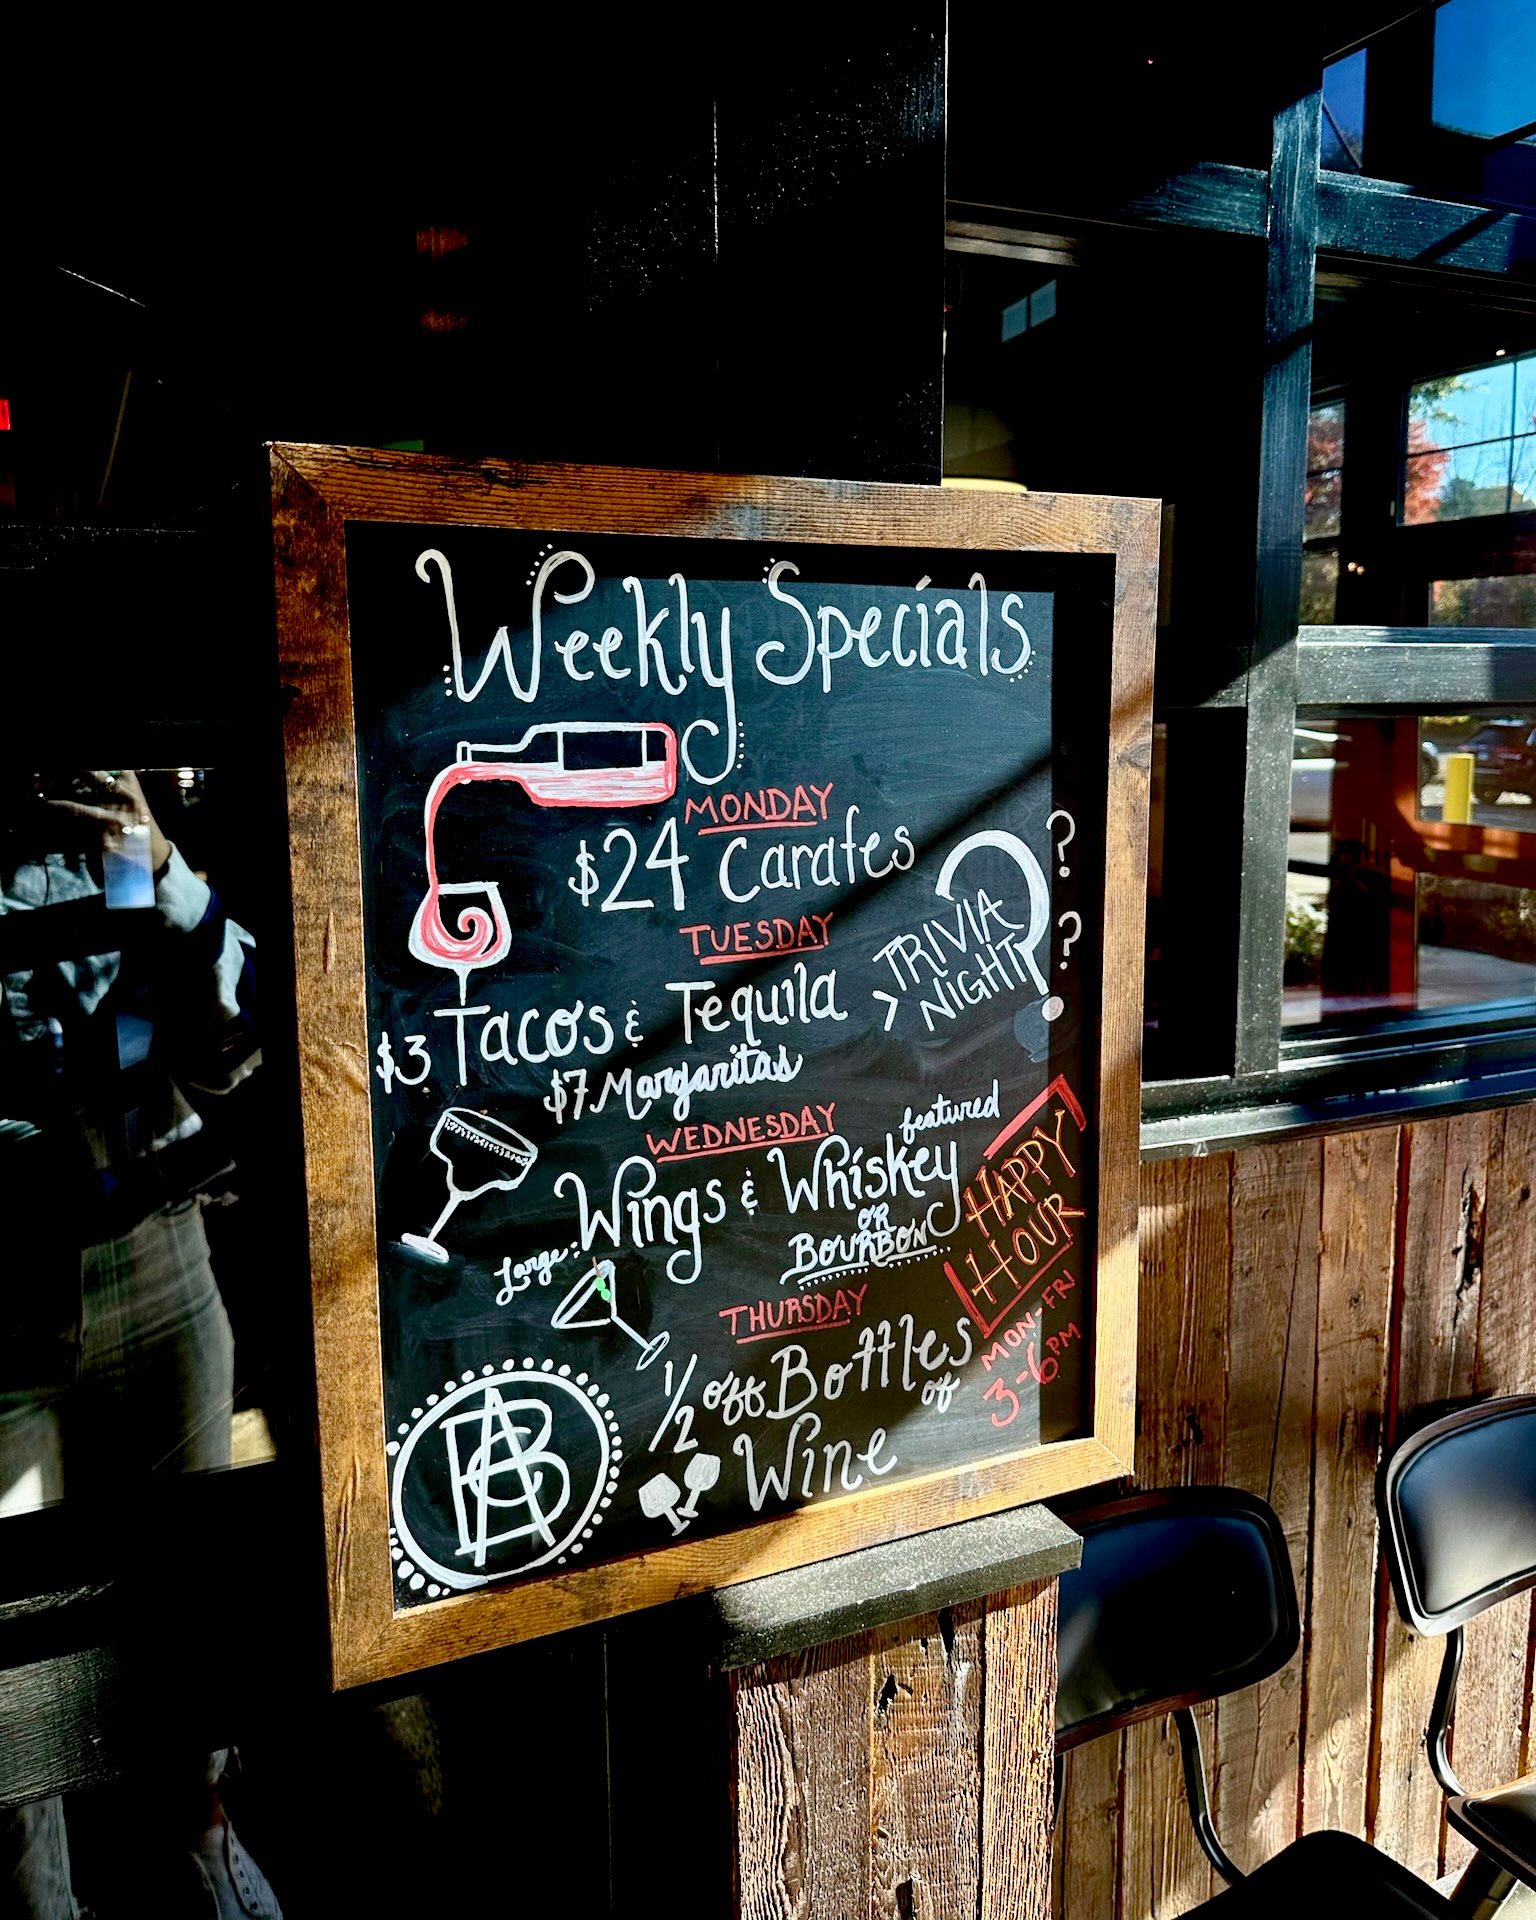 Weekly Specials
MONDAY
$24 Carafes
TUESDAY
$3 Tacos & Tequila
$7 Margaritas
TRIVIA
NIGHT
? ?
WEDNESDAY
featured
Large Wings & Whiskey
OR
BOURBON
HAPPY
HOUR
MON-FRI
3-6PM
THURSDAY
1/2 off Bottles
of
Wine